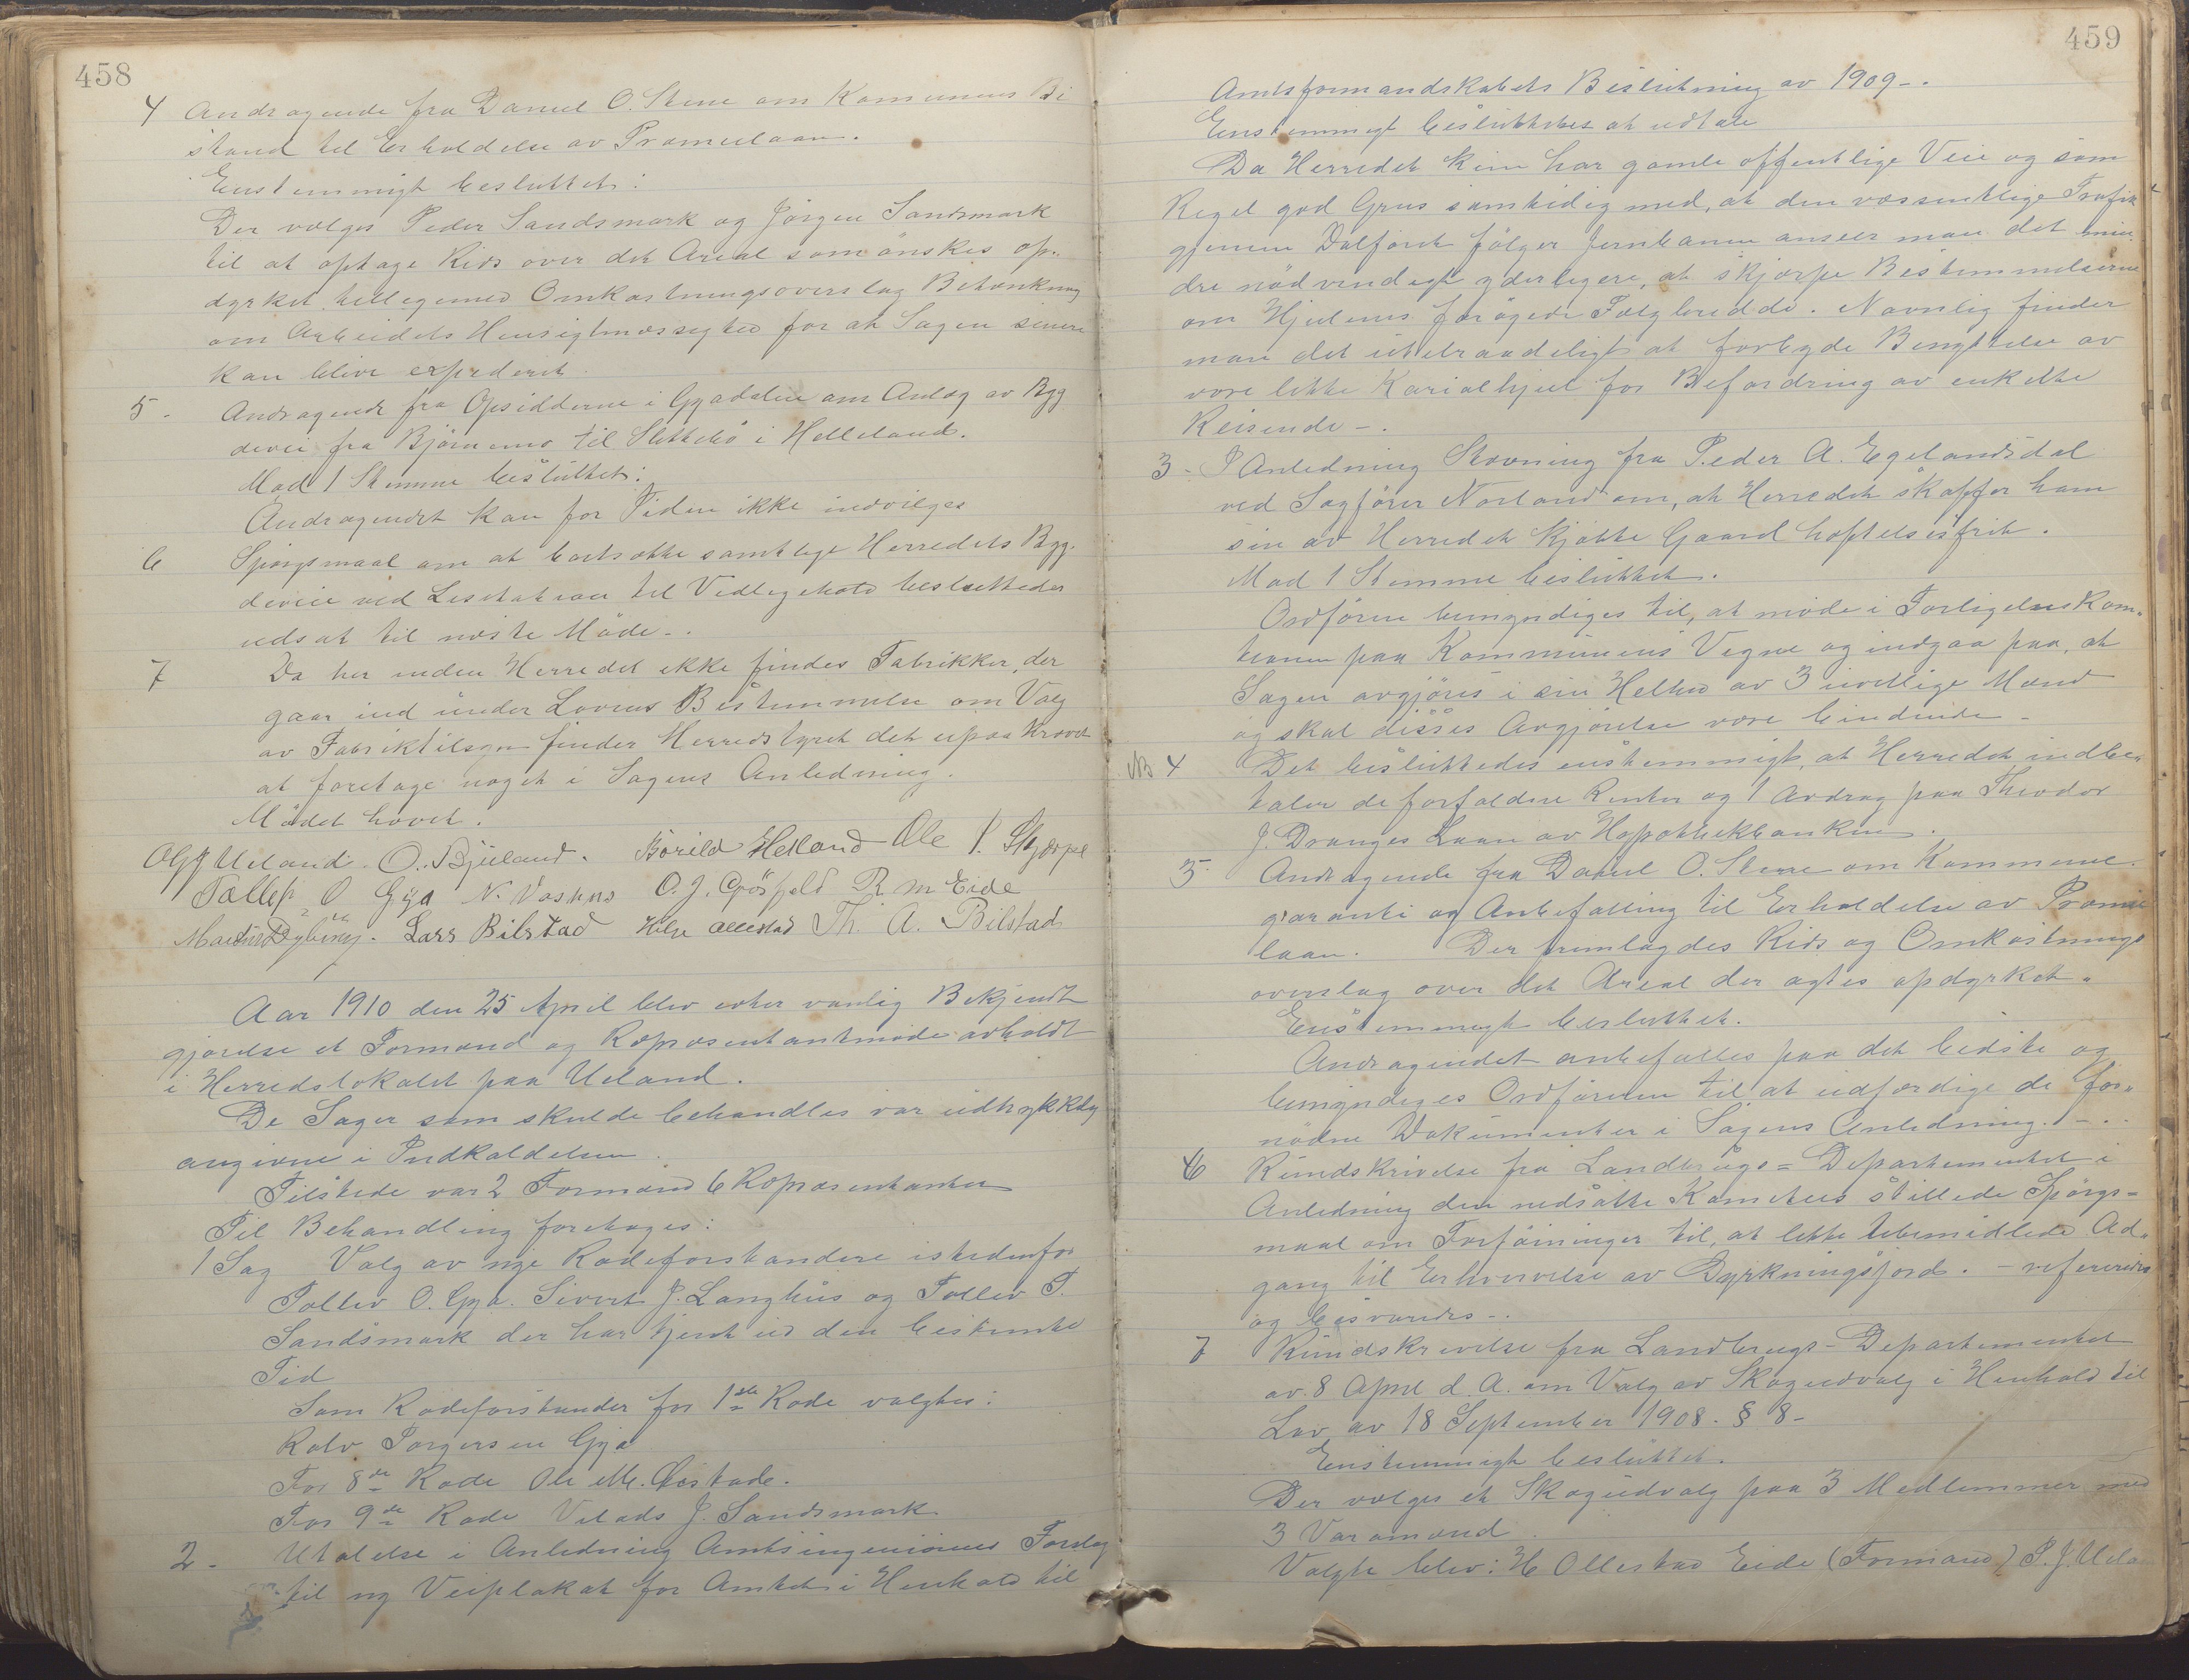 458
4 Andragende fra Daniel O. Stene om Komunens Bi
stand til Erholdelse av Præmielaan.
Enstemmigt besluttet:
Der vælges Peder Sandsmark og Jörgen Sandsmark
til at optage Rids over det Areal som önskes op-
dyrket tilligemed Omkostningsoverslag Betænkning
om Arbeidets Hensigtmæssighed for at Sagen senere
kan blive expederet
5. Andragende fra Opsidderne i Gyadalen om Anlæg av Byg
devei fra Björnemo til Slettebö i Helleland.
Mod 1 Stemme besluttet:
Andragendet kan for Tiden ikke indvilges
6 Spörgsmaal om at bortsætte samtlige Herredets Byg-
deveie ved Lisitation til Vedligehold besluttedes
udsat til næste Möde..
7 Da her inden Herredet ikke findes Fabrikker, der
gaar ind under Lovens Bestemmelse om Valg
av Fabriktilsyn finder Herredstyret det upaakrævet
at foretage noget i Sagens Anledning.
Mödet hævet.
Ueland. O. Bjueland. Börild Helland Ole P. Skjærpe
Tollef O Gya N. Vashus O. J. Gösfeld R M Eide
Martin Dybing. Lars Bilstad Helge Ollestad Th. A. Bilstad
Aar 1910 den 25 April blev efter vanlig Bekjendt
gjörelse et Formænd og Repræsentantmöde avholdt
i Herredslokalet paa Ueland.
De Sager som skulde behandles var udtrykkelig
angivne i Indkaldelsen.
Tilstede var 2 Formænd 6 Repræsentanter
Til Behandling foretoges:
1 Sag Valg av nye Rodeforstandere istedenfor
Tollev O. Gya. Sivert J. Langhus og Tollev T.
Sandsmark der har tjent ud den bestemte
Tid
Som Rodeforstander for 1ste Rode valgtes:
Rolv Torgersen Gya
For 8de Rode Ole M.
For 9de Rode Vilads J. Sandsmark
2. Utalelse i Anledning Amtsingeniörens Forslag
til ny Veiplakat for Amtet i Henhold til
459
Amtsformandskabets Beslutning av 1909-.
Enstemmigt besluttedes at udtale
Da Herredet kun har gamle offentlige Veie og som
Regel god Grus samtidig med, at den væsentlige Trafik
gjennem Dalföret fölger Jernbanen anseer man det min-
dre nödvendigt yderligere, at skjærpe Bestemmelserne
om Hjulenes forögede Fælgbredde. Navnlig finder
man det utilraadeligt at forbyde Benyttelse av
vore lette Kariolhjul for Befordring av enkelte
Reisende-.
3. I Anledning Stævning fra Peder A. Egelandsdal
ved Sagförer Norland om, at Herredet skaffer ham
sin av Herredet kjöbte Gaard heftelsesfrit.
Mod 1 Stemme besluttet.
Ordfören bemyndiges til, at möde i Forligelseskom-
tionen paa Kommunens Vegne og indgaa paa, at
Sagen avgjöres i sin Helhed av 3 uvillige Mænd
og skal disses Avgjörelse være bindende-
NB 4 Det besluttedes enstemmigt, at Herredet indbe-
taler de forfaldne Renter og 1 Avdrag paa Theodor
J. Dranges Laan av Hypothekbanken.
5 Andragende fra Daniel O. Stene om Kommune-
garanti og Anbefalling til Erholdelse av Præmie
laan. Der fremlagdes Rids og Omkostnings
overslag over det Areal der agtes opdyrket.
Enstemmigt besluttet.
Andragendet anbefalles paa det bedste og
bemyndiges Ordföreren til at udfærdige de for-
nödne Dokumenter i Sagens Anledning.-.
6 Rundskrivelse fra Landbrugs-Departementet i
Anledning den nedsatte Komitees stillede Spörgs-
maal om Forföininger til, at lette Ubemidlede Ad-
gang til Erhvervelse av Dyrkningsjord.-refereredes
og besvaredes-.
7 Rundskrivelse fra Landbrugs-Departementet
av 8 April d. A. om Valg av Skogudvalg i Henhold til
Lov av 18 September 1908. § 8-
Enstemmigt besluttet.
Der vælges et Skogudvalg paa 3 Medlemmer med
3 Varamænd.
Valgte blev: H Ollestad Eide (Formand) P. J. Uela